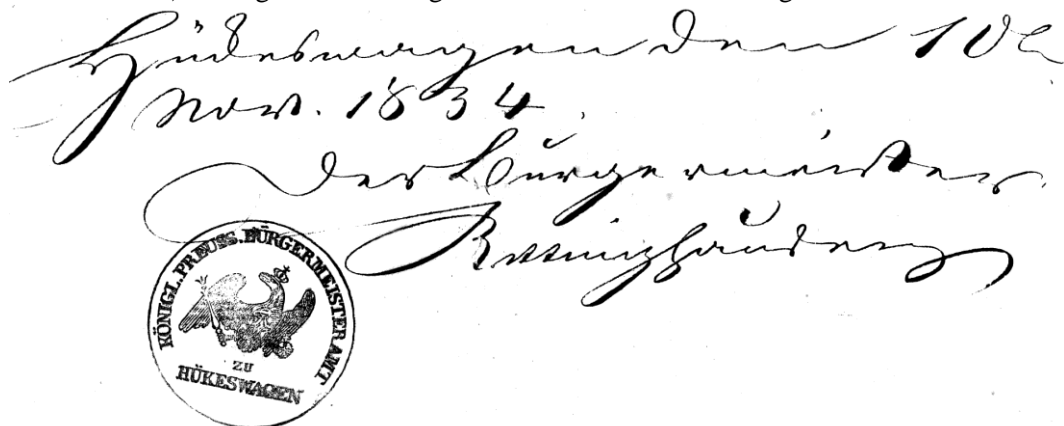 Hückeswagen den 10t
Nov. 1834.
Der Bürgermeister
KÖNIGL. PREUSS. BÜRGERMEISTERAMT
ZU
HÜKESWAGEN